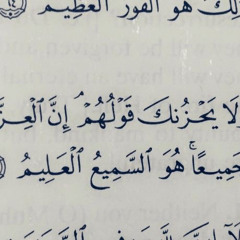 هُوَ ٱلْفَوْزُ ٱلْعَظِيمُ
لَا يَحْزُنكَ قَوْلُهُمْ ۘ إِنَّ ٱلْعِزَّ
جَمِيعًا ۚ هُوَ ٱلسَّمِيعُ ٱلْعَلِيمُ